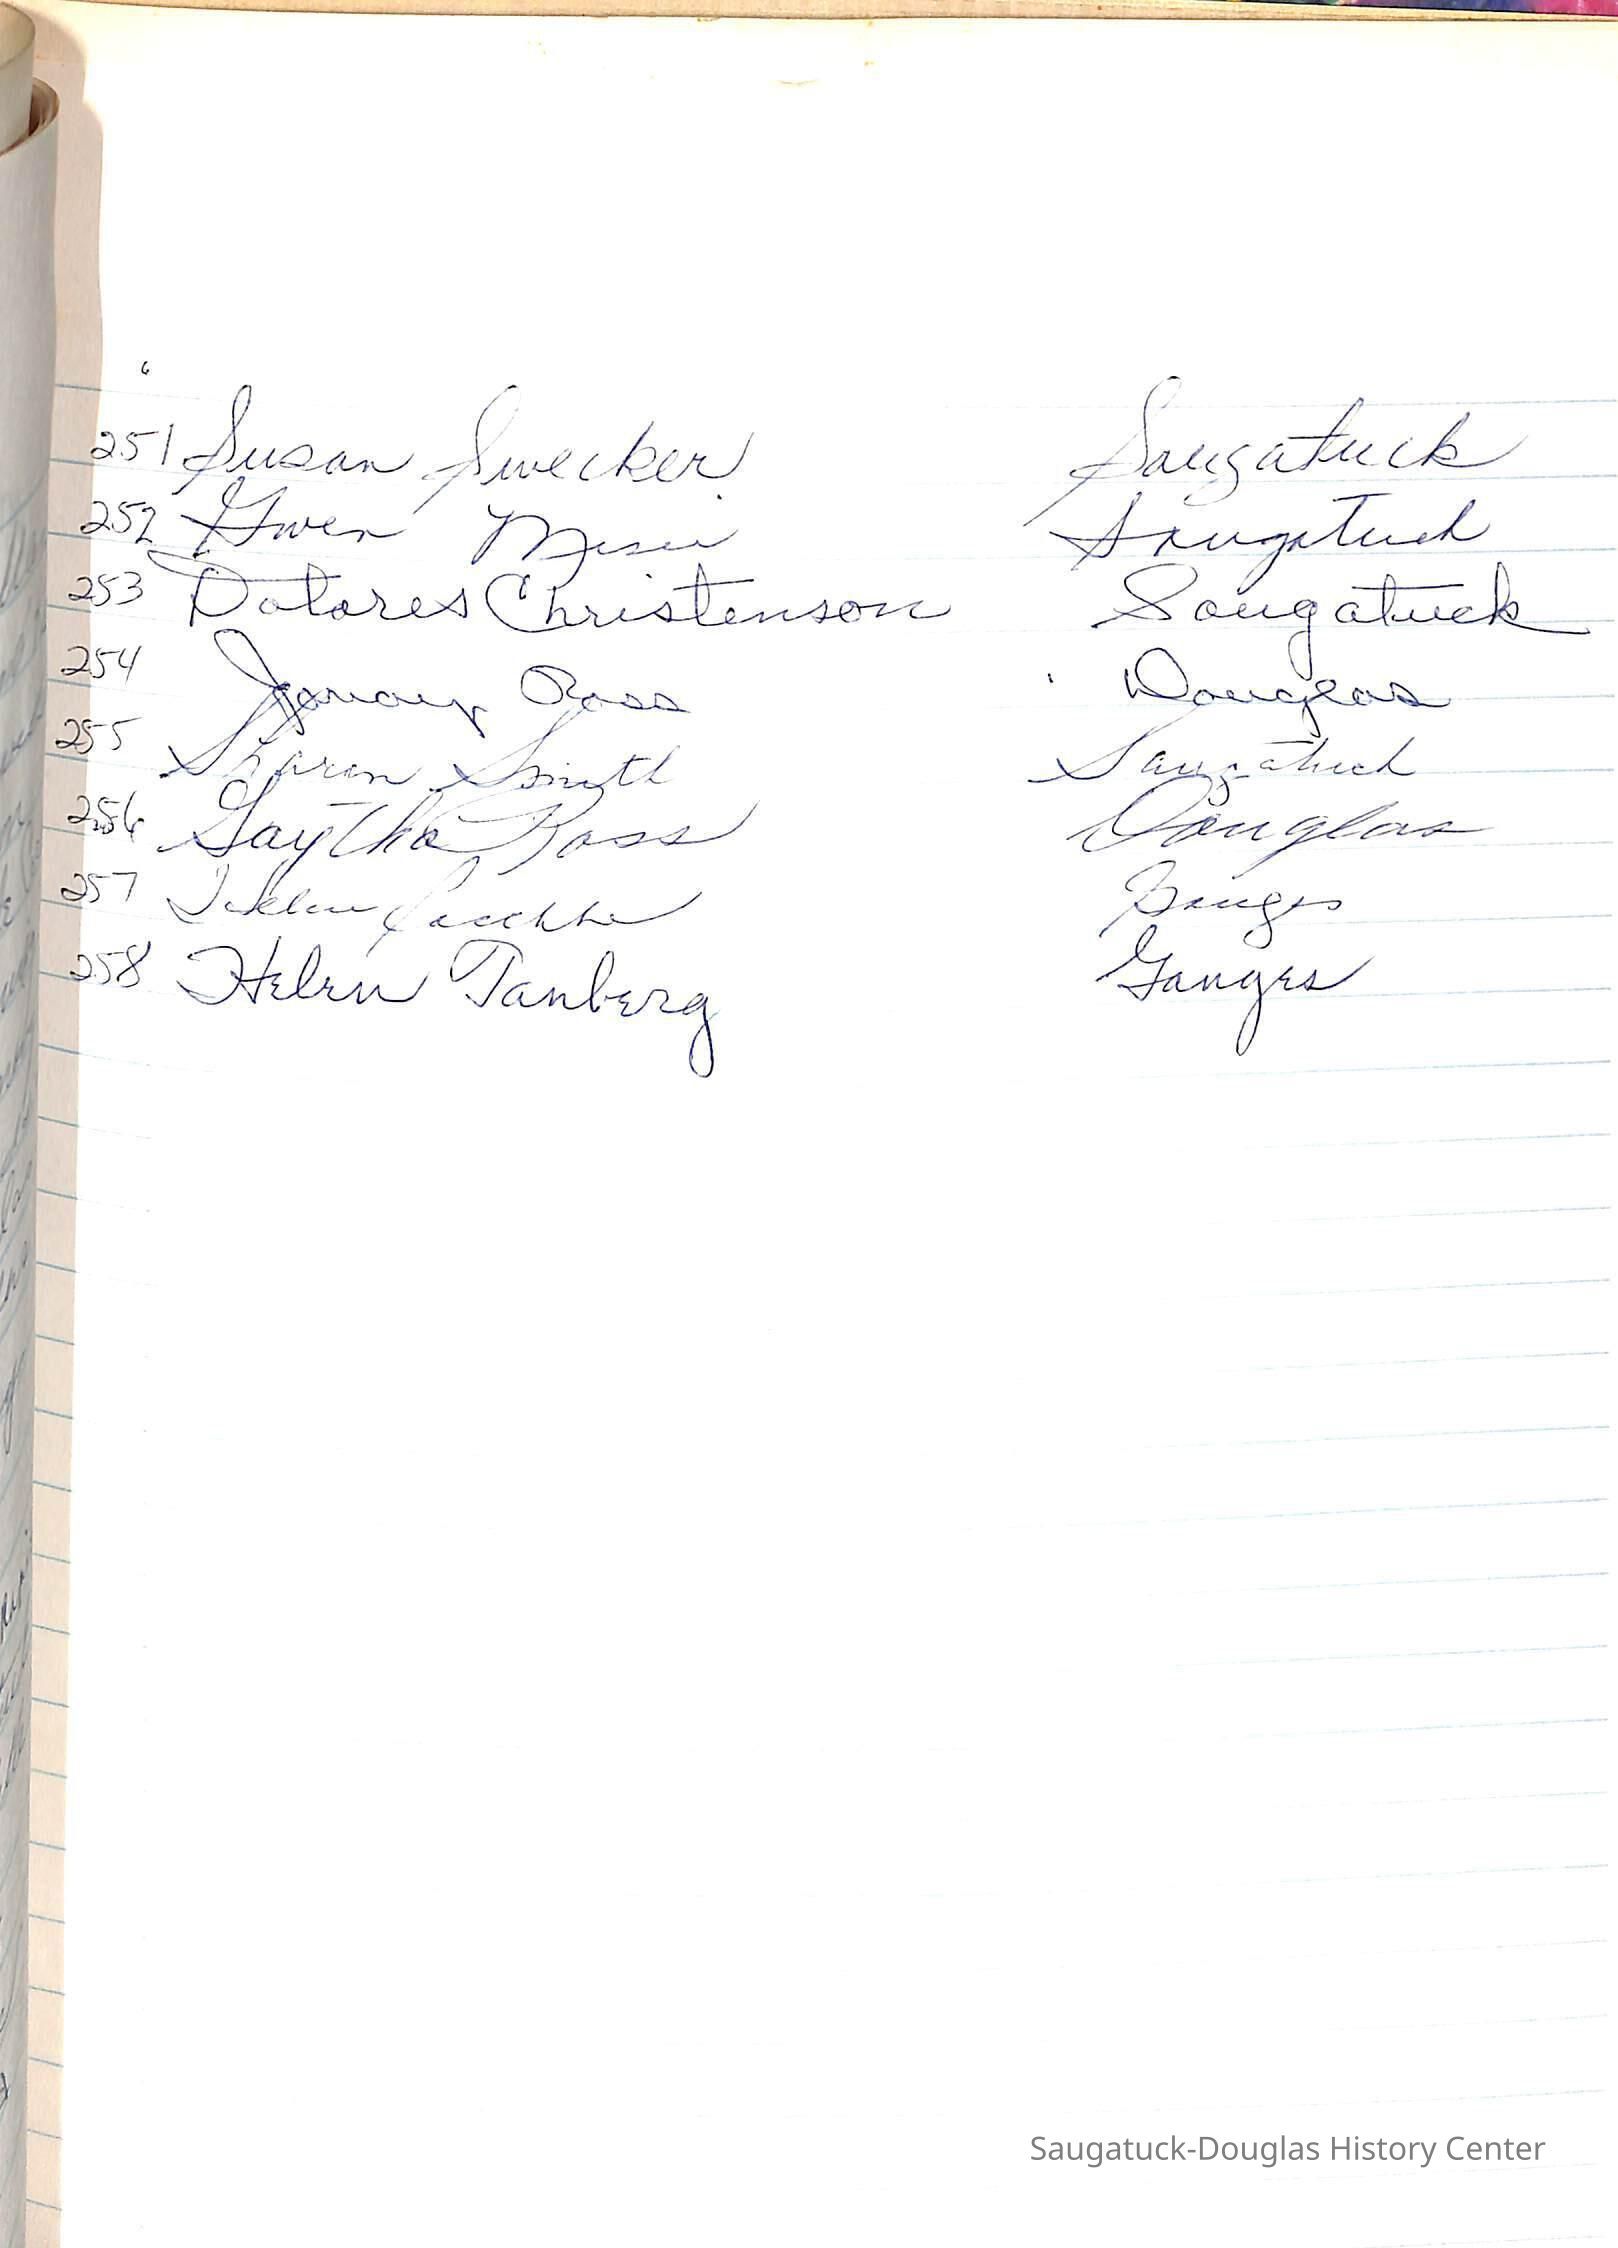 251 Susan Swecker Saugatuck
252 Gwen Saugatuck
253 Dolores Christenson Saugatuck
254 Ross Douglas
255 Sharon Smith Saugatuck
256 Gaytha Ross Douglas
257 Ganges
258 Helen Tanberg Ganges
Saugatuck-Douglas History Center